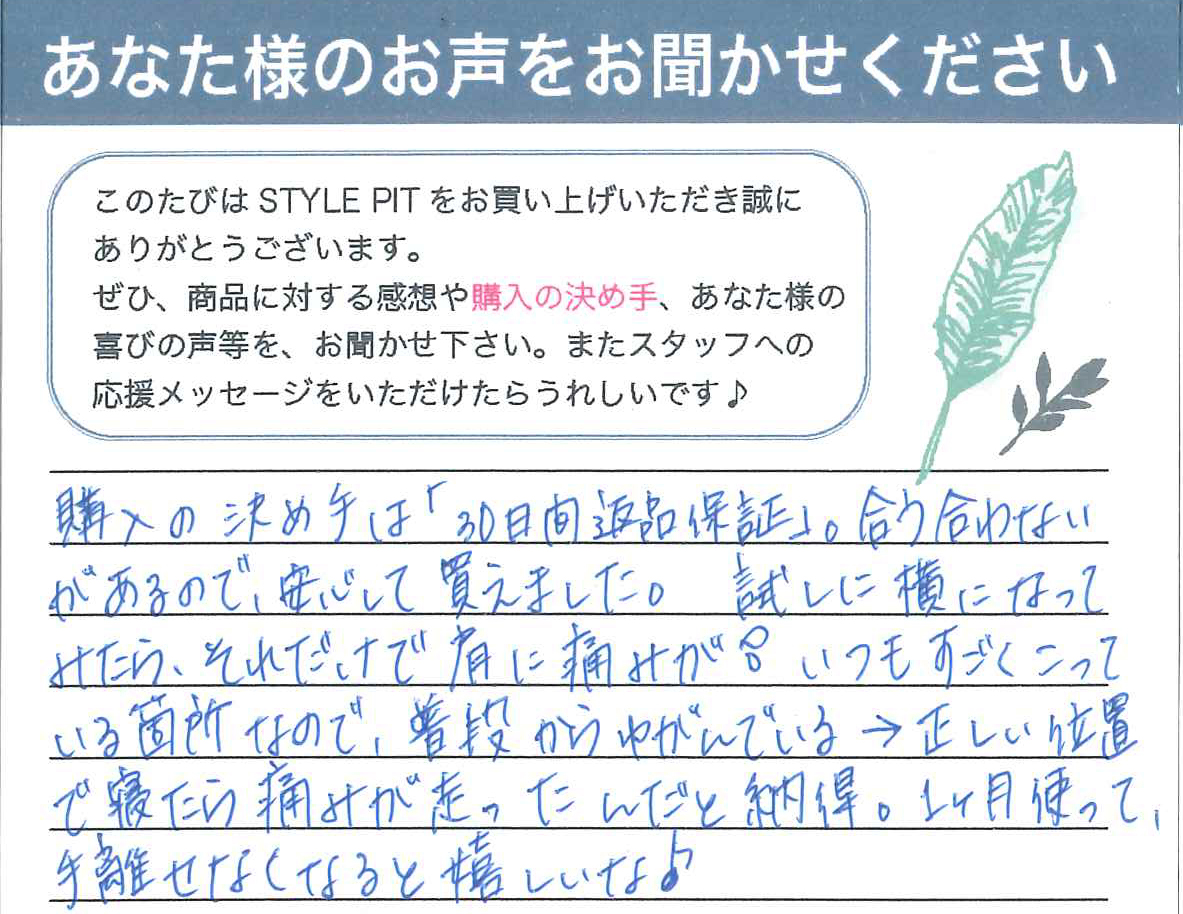 あなた様のお声をお聞かせください
このたびは STYLE PIT をお買い上げいただき誠に
ありがとうございます。
ぜひ、商品に対する感想や購入の決め手、あなた様の
喜びの声等を、お聞かせ下さい。またスタッフへの
応援メッセージをいただけたらうれしいです♪
購入の決め手は「30日間返品保証」。合う合わない
があるので、安心して買えました。 試しに横になって
みたら、それだけで肩に痛みが!! いつもすごくこって
いる箇所なので、普段からゆがんでいる→正しい位置
で寝たら痛みが走ったんだと納得。1ヶ月使って、
手離せなくなると嬉しいな♪